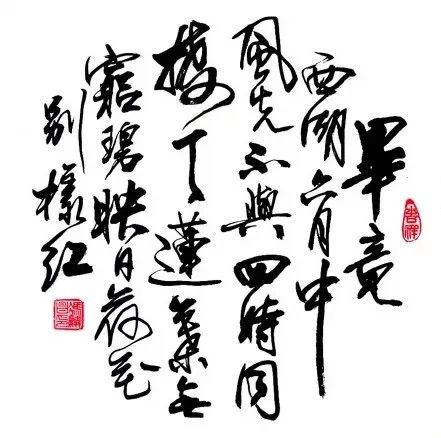 畢竟
西湖六月中
風光不與四時同
接天蓮葉無
窮碧映日荷花
別樣红
吉祥